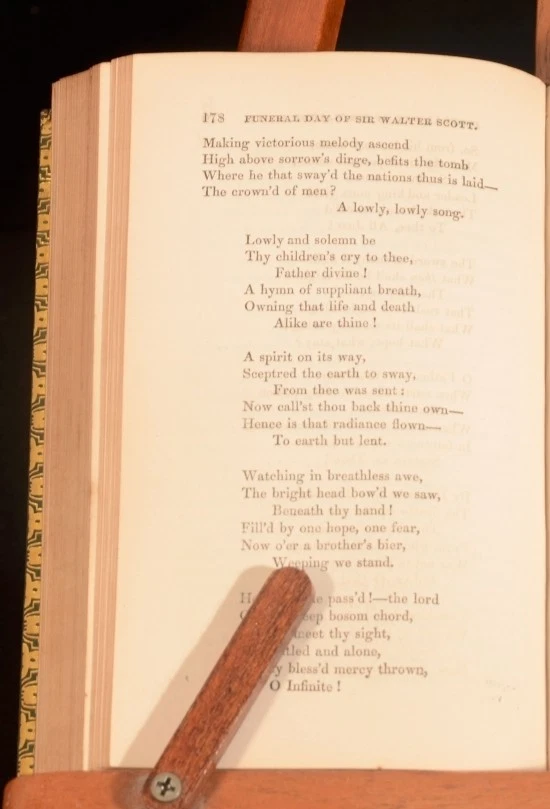 178 FUNERAL DAY OF SIR WALTER SCOTT.
Making victorious melody ascend
High above sorrow's dirge, befits the tomb
Where he that sway'd the nations thus is laid—
The crown'd of men?
A lowly, lowly song.
Lowly and solemn be
Thy children's cry to thee,
Father divine!
A hymn of suppliant breath,
Owning that life and death
Alike are thine!
A spirit on its way,
Sceptred the earth to sway,
From thee was sent:
Now call'st thou back thine own—
Hence is that radiance flown—
To earth but lent.
Watching in breathless awe,
The bright head bow'd we saw,
Beneath thy hand!
Fill'd by one hope, one fear,
Now o'er a brother's bier,
Weeping we stand.
pass'd!—the lord
bosom chord,
meet thy sight,
and alone,
bless'd mercy thrown,
O Infinite!